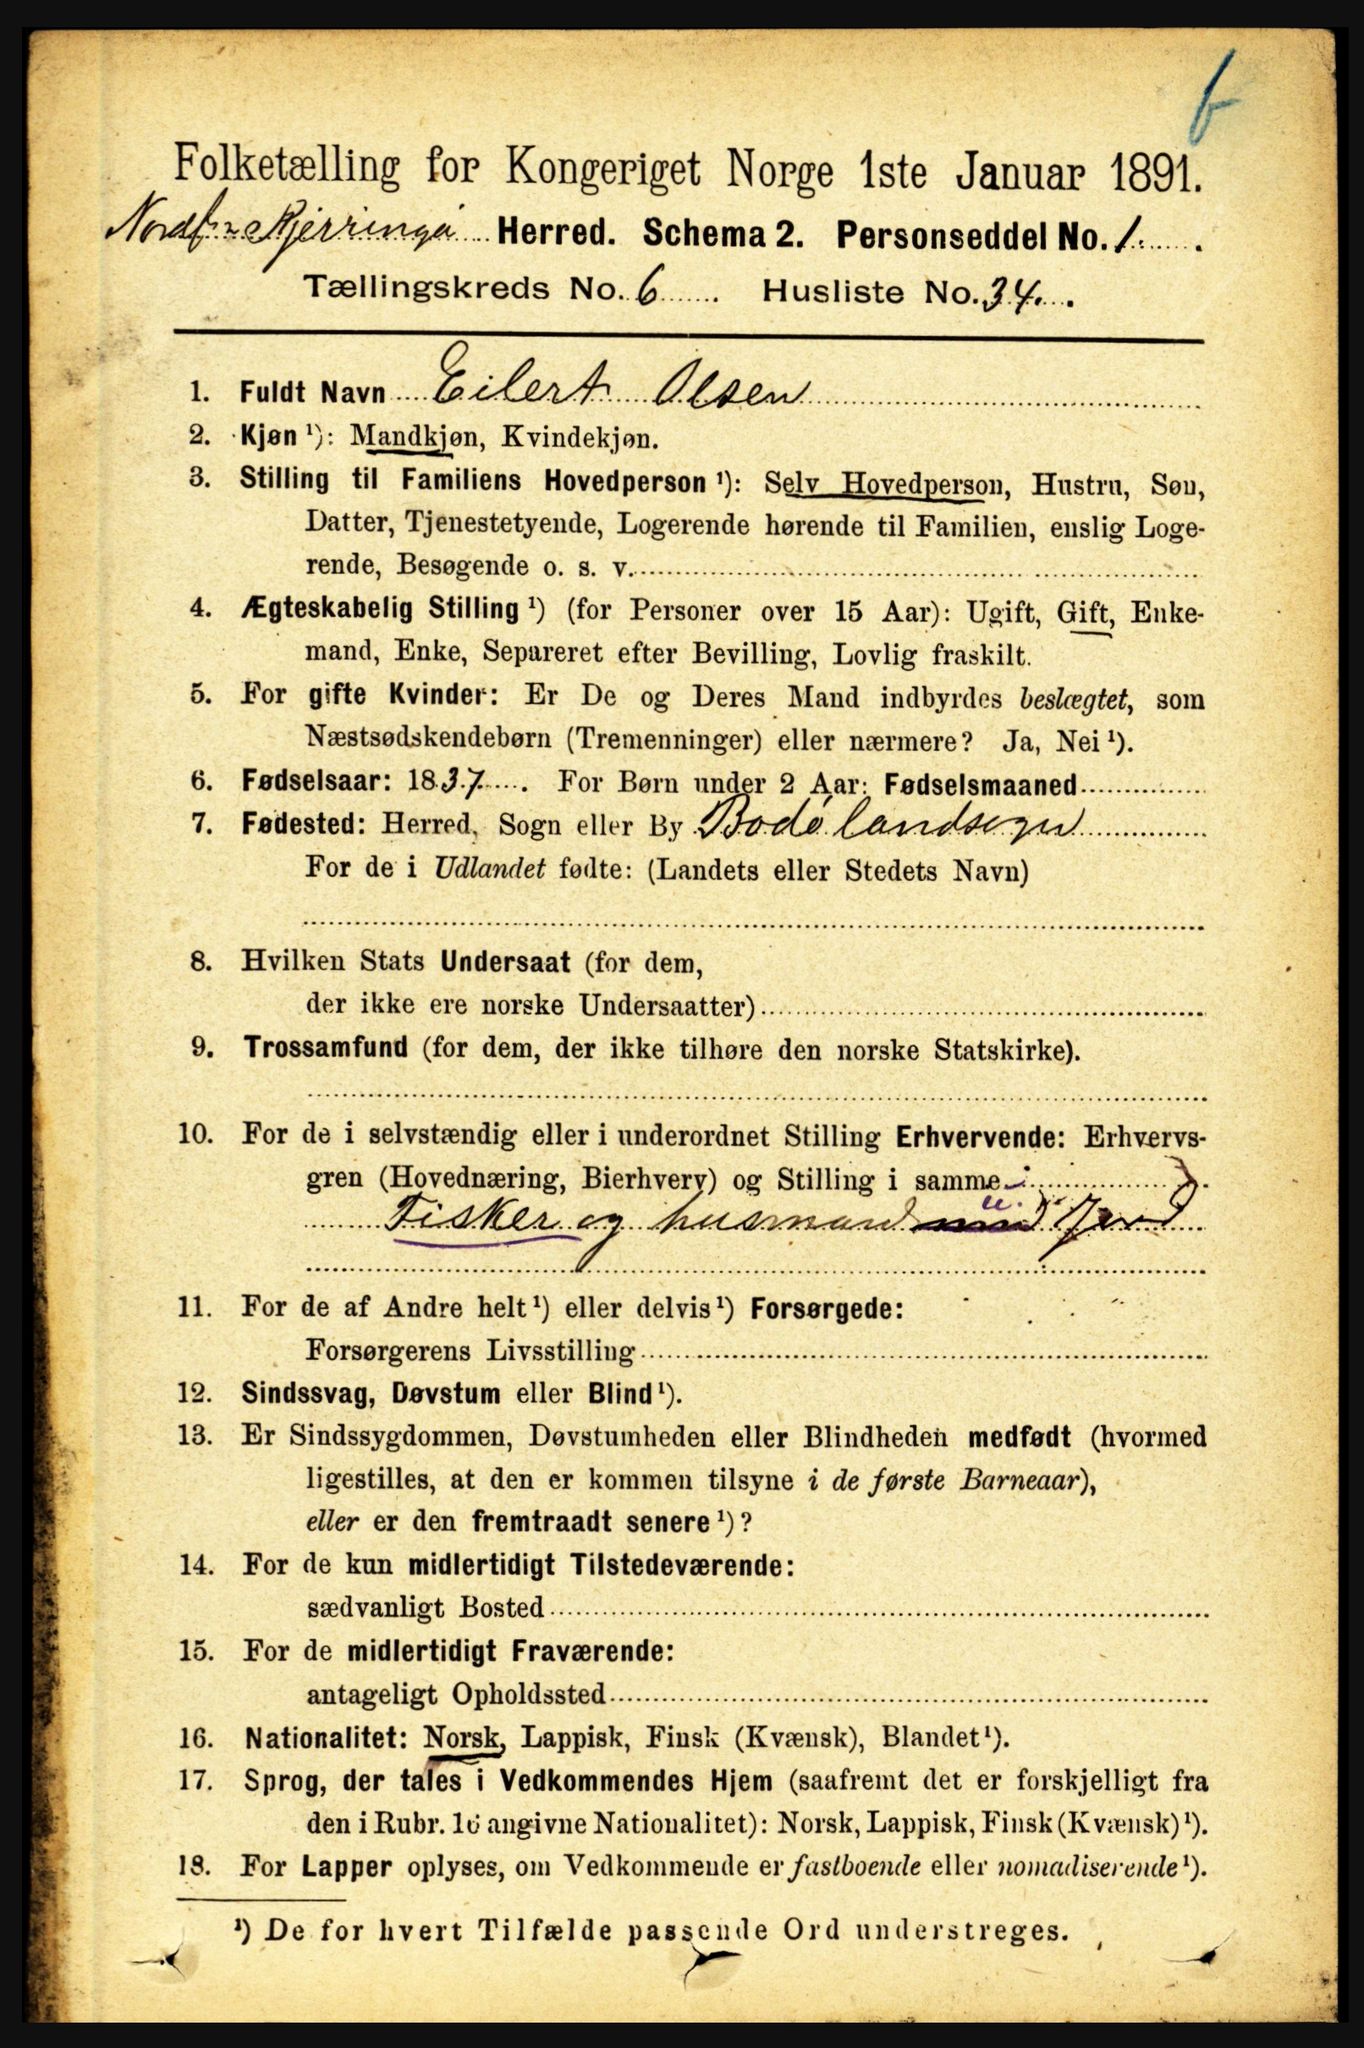 6
Folketælling for Kongeriget Norge 1ste Januar 1891.
Kjerringø Herred. Schema 2. Personseddel No. 1.
Tællingskreds No. 6. Husliste No. 34.
1. Fuldt Navn Eilert Olsen
2. Kjøn ¹): Mandkjøn, Kvindekjøn.
3. Stilling til Familiens Hovedperson ¹): Selv Hovedperson, Hustru, Søn,
Datter, Tjenestetyende, Logerende hørende til Familien, enslig Loge-
rende, Besøgende o. s. v.
4. Ægteskabelig Stilling ¹) (for Personer over 15 Aar): Ugift, Gift, Enke-
mand, Enke, Separeret efter Bevilling, Lovlig fraskilt.
5. For gifte Kvinder: Er De og Deres Mand indbyrdes beslægtet, som
Næstsødskendebørn (Tremenninger) eller nærmere? Ja, Nei ¹).
6. Fødselsaar: 1837. For Børn under 2 Aar: Fødselsmaaned
7. Fødested: Herred, Sogn eller By Bodø landsogn
For de i Udlandet fødte: (Landets eller Stedets Navn)
8. Hvilken Stats Undersaat (for dem,
der ikke ere norske Undersaatter)
9. Trossamfund (for dem, der ikke tilhøre den norske Statskirke).
10. For de i selvstændig eller i underordnet Stilling Erhvervende: Erhvervs-
gren (Hovednæring, Bierhverv) og Stilling i samme
Fisker og husmand med u. Jord
11. For de af Andre helt ¹) eller delvis ¹) Forsørgede:
Forsørgerens Livsstilling
12. Sindssvag, Døvstum eller Blind ¹).
13. Er Sindssygdommen, Døvstumheden eller Blindheden medfødt (hvormed
ligestilles, at den er kommen tilsyne i de første Barneaar),
eller er den fremtraadt senere ¹)?
14. For de kun midlertidigt Tilstedeværende:
sædvanligt Bosted
15. For de midlertidigt Fraværende:
antageligt Opholdssted
16. Nationalitet: Norsk, Lappisk, Finsk (Kvænsk), Blandet ¹).
17. Sprog, der tales i Vedkommendes Hjem (saafremt det er forskjelligt fra
den i Rubr. 16 angivne Nationalitet): Norsk, Lappisk, Finsk (Kvænsk) ¹).
18. For Lapper oplyses, om Vedkommende er fastboende eller nomadiserende ¹).
¹) De for hvert Tilfælde passende Ord understreges.